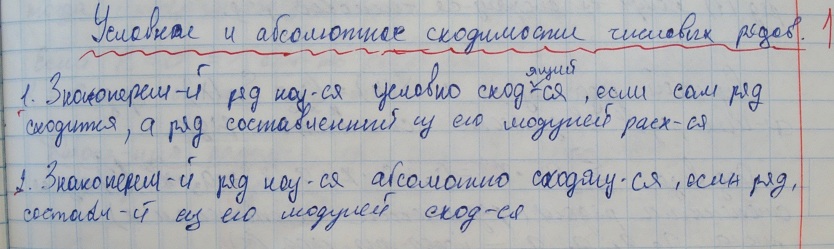 Условная и абсолютная сходимости числовых рядов. 1
1. Знакоперем-й ряд наз-ся условно сходящийся, если сам ряд
сходится, а ряд составленный из его модулей расх-ся
2. Знакоперем-й ряд наз-ся абсолютно сходящ-ся, если ряд,
составл-й из его модулей сход-ся